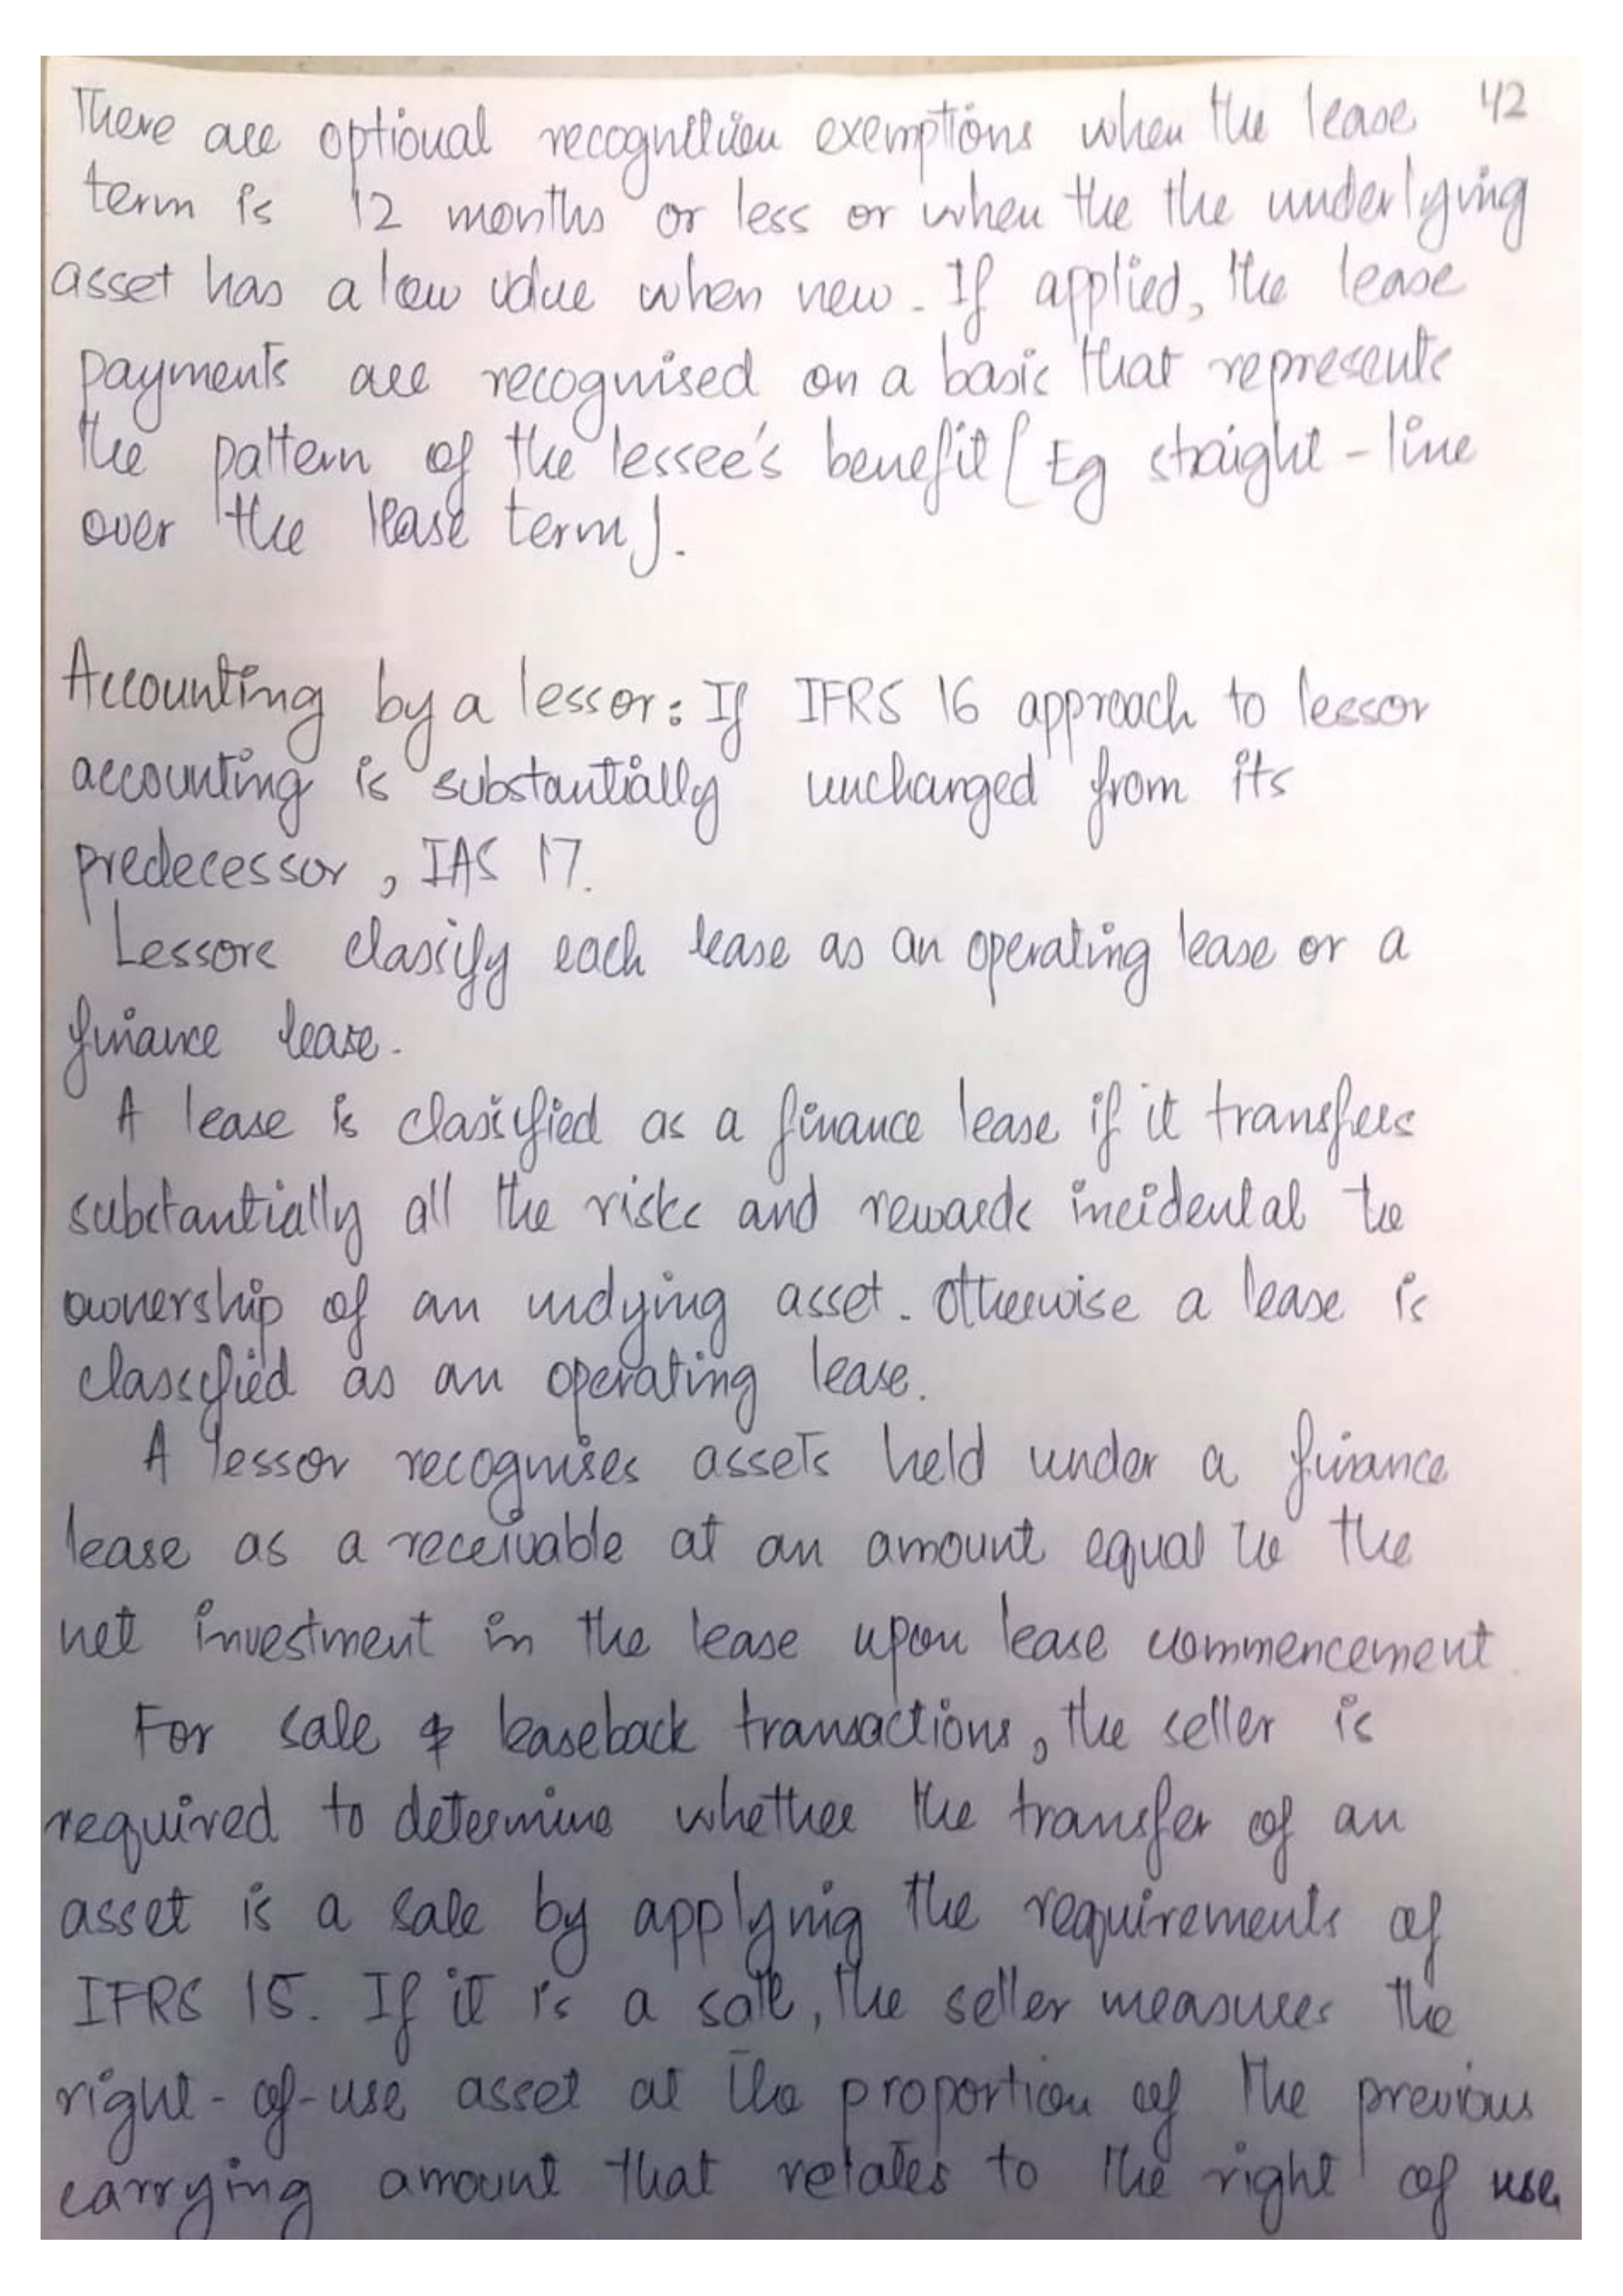 There are optional recognition exemptions when the lease 42
term is 12 months or less or when the the underlying
asset has a low value when new. If applied, the lease
payments are recognised on a basis that represents
the pattern of the lessee's benefit [Eg straight-line
over the lease term].
Accounting by a lessor: If IFRS 16 approach to lessor
accounting is substantially unchanged from its
predecessor, IAS 17.
Lessors classify each lease as an operating lease or a
finance lease.
A lease is classified as a finance lease if it transfers
substantially all the risks and rewards incidental to
ownership of an undying asset. Otherwise a lease is
classified as an operating lease.
A lessor recognises assets held under a finance
lease as a receivable at an amount equal to the
net investment in the lease upon lease commencement.
For sale & leaseback transactions, the seller is
required to determine whether the transfer of an
asset is a sale by applying the requirements of
IFRS 15. If it is a sale, the seller measures the
right-of-use asset at the proportion of the previous
carrying amount that relates to the right of use